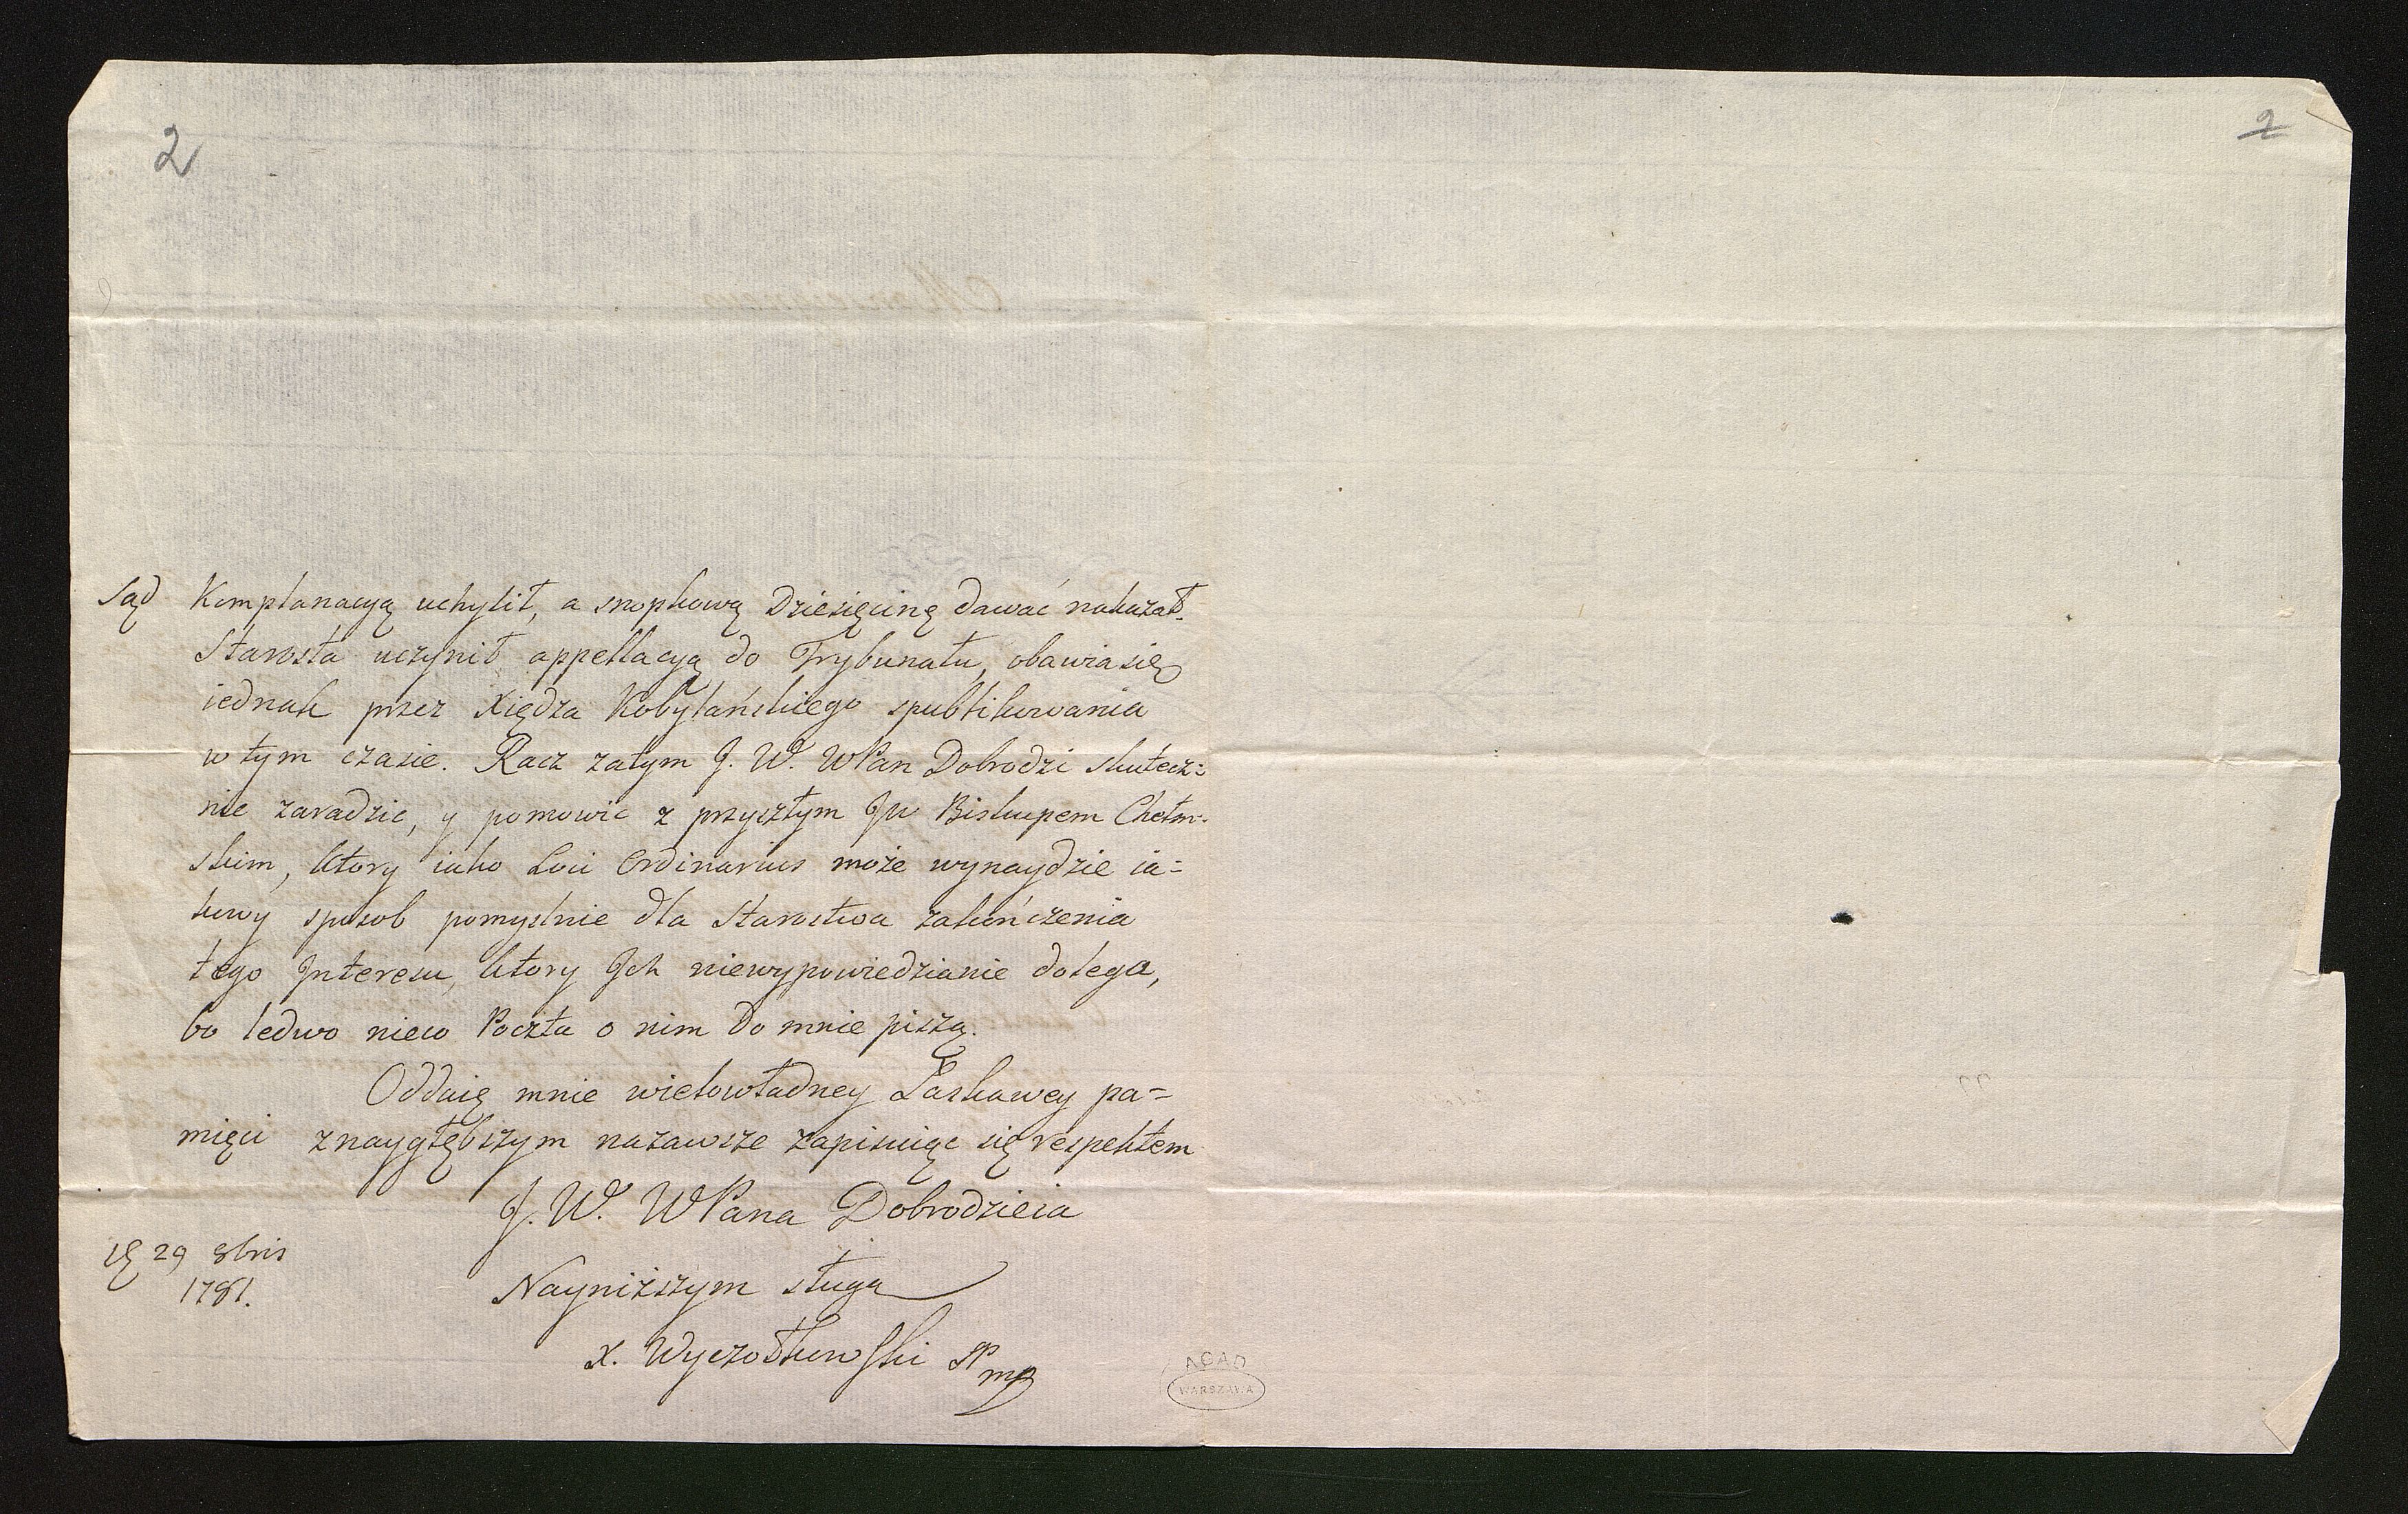 2
2
Sąd Komplanacyą uchylił, a snopkową Dziesięcinę dawać nakazał.
Starosta uczynił appellacyą do Trybunału, obawia się
iednak przez Xiędza Kobylańskiego spublikowania
w tym czasie. Racz zatym J. W. WPan Dobrodzi skutecz:
nie zaradzic, y pomowic z przyszłym JW Biskupem Chełm:
skim, ktory iako Loci Ordinarius może wynaydzie ia=
kowy sposob pomyslnie dla Starostwa zakończenia
tego Interesu, ktory Ich niewypowiedzianie dolega,
bo ledwo nieco Poczta o nim do mnie piszą.
Oddaię mnie wielowładney Łaskawey pa=
mięci znaygłębszym nazawsze zapisuiąc się respektem
J. W. WPana Dobrodzieia
29 8bris
1781.
Nayniższym sługą
X. Wyczołkowski SP
mp
AGAD
WARSZAWA